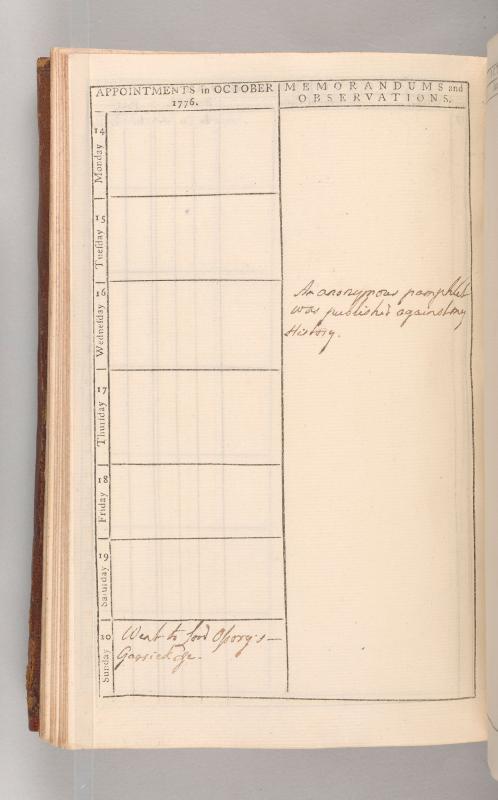 APPOINTMENTS in OCTOBER
1776.
MEMORANDUMS and
OBSERVATIONS.
14
Monday
15
Tueſday
16
Wedneſday
An anonymous pamphlet
was publish'd against my
History.
17
Thurſday
18
Friday
19
Saturday
20
Sunday
Went to Lord Oſsory's —
Garrick &c.